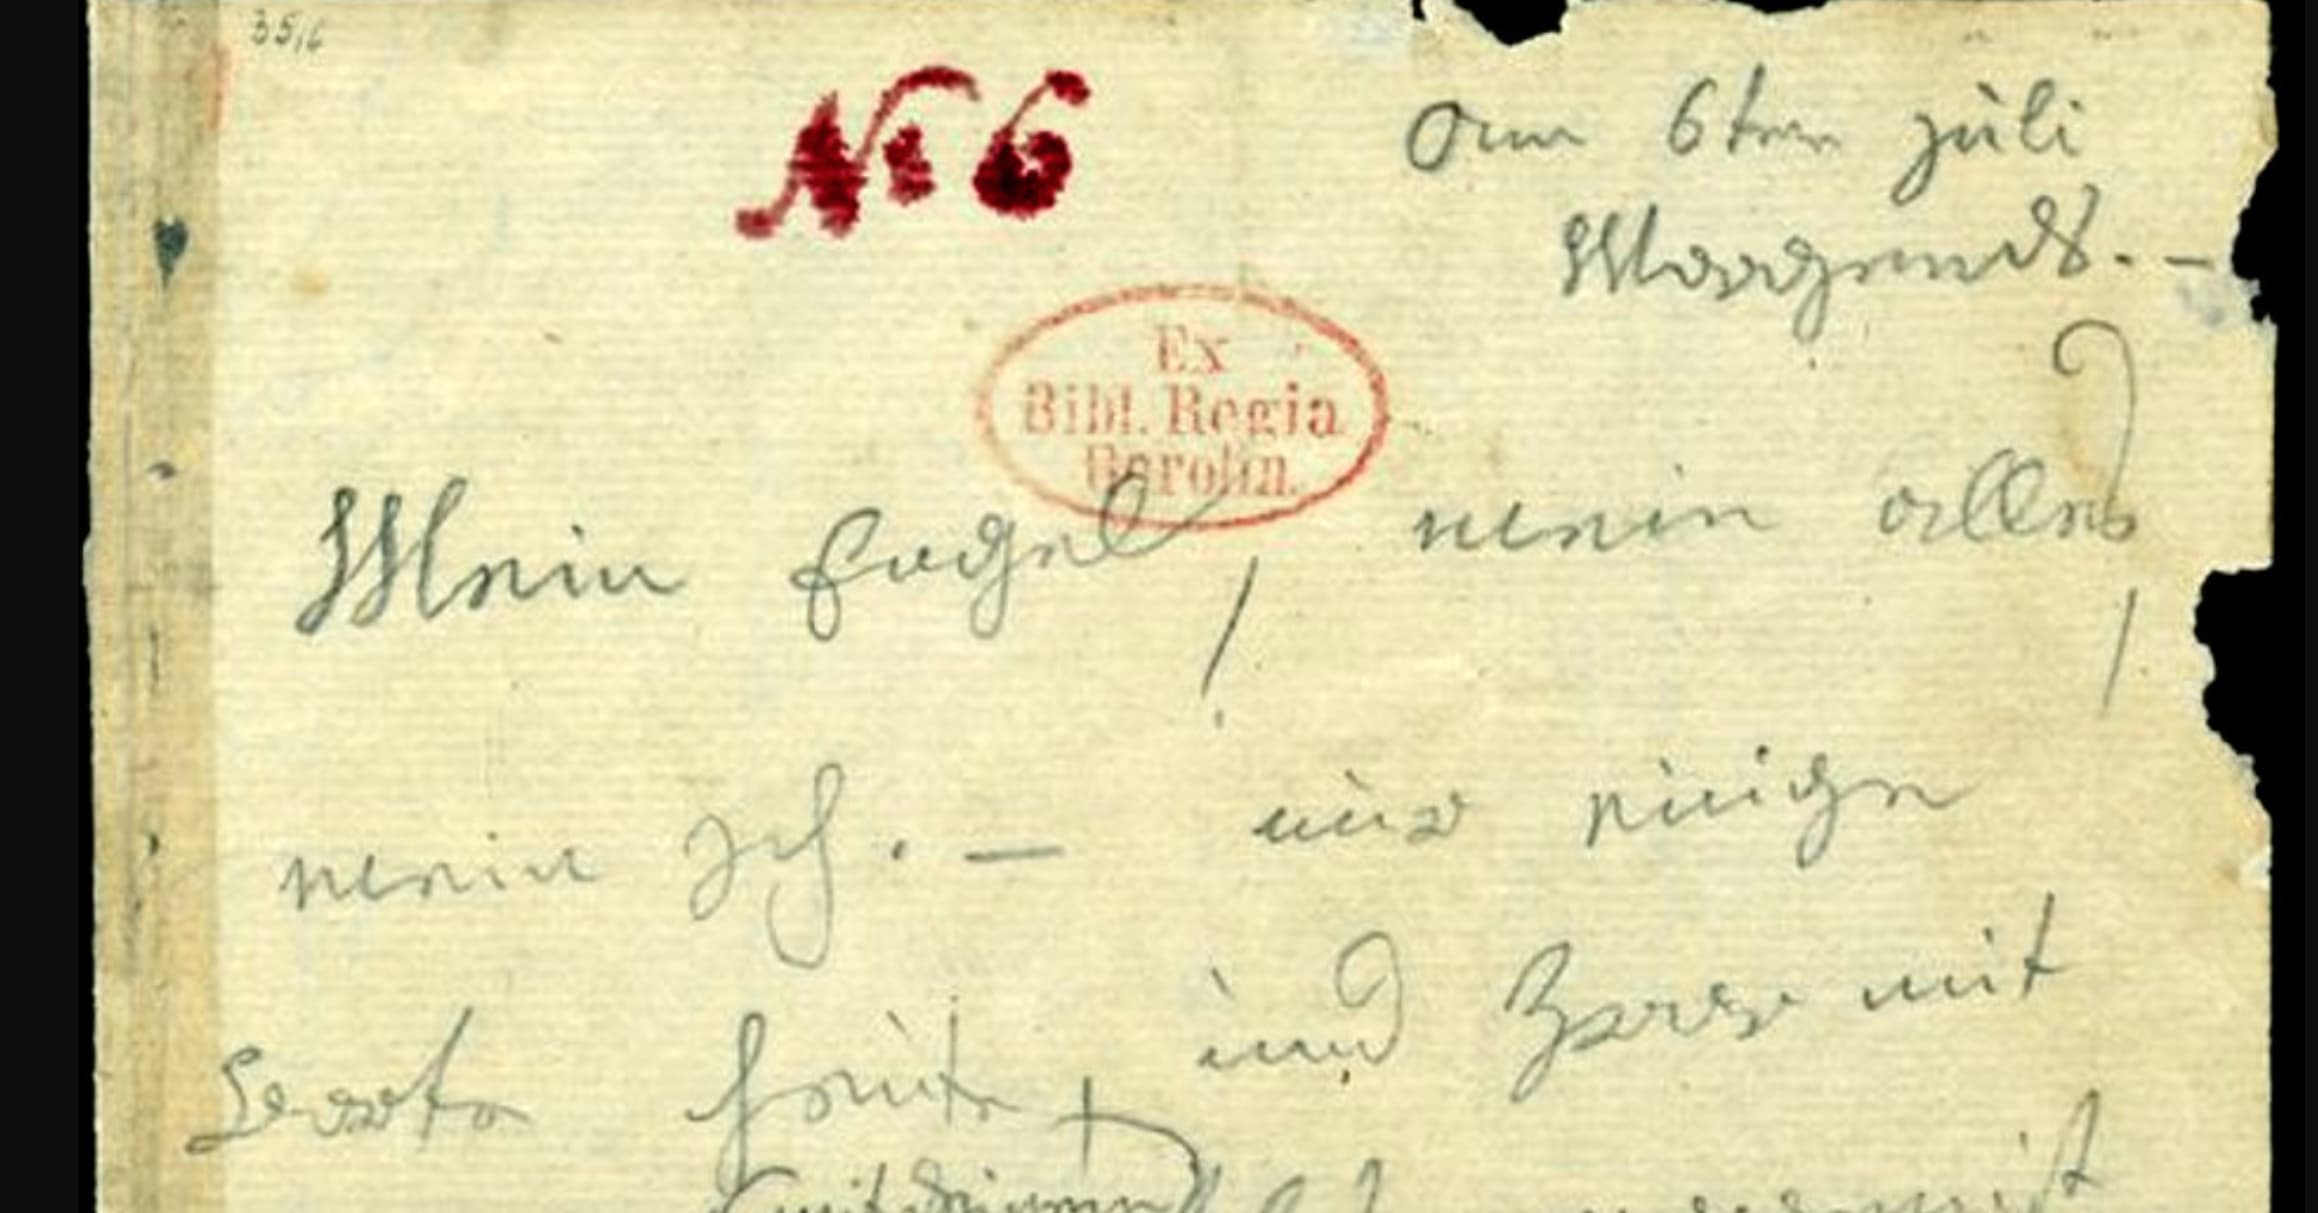 35,6
No 6
Am 6ten juli
Morgends. –
Ex
Bibl. Regia
Berolin.
Mein Engel, mein alles,
mein Ich. – nur einige
Worte heute, und Zwar mit
(mit deinem)